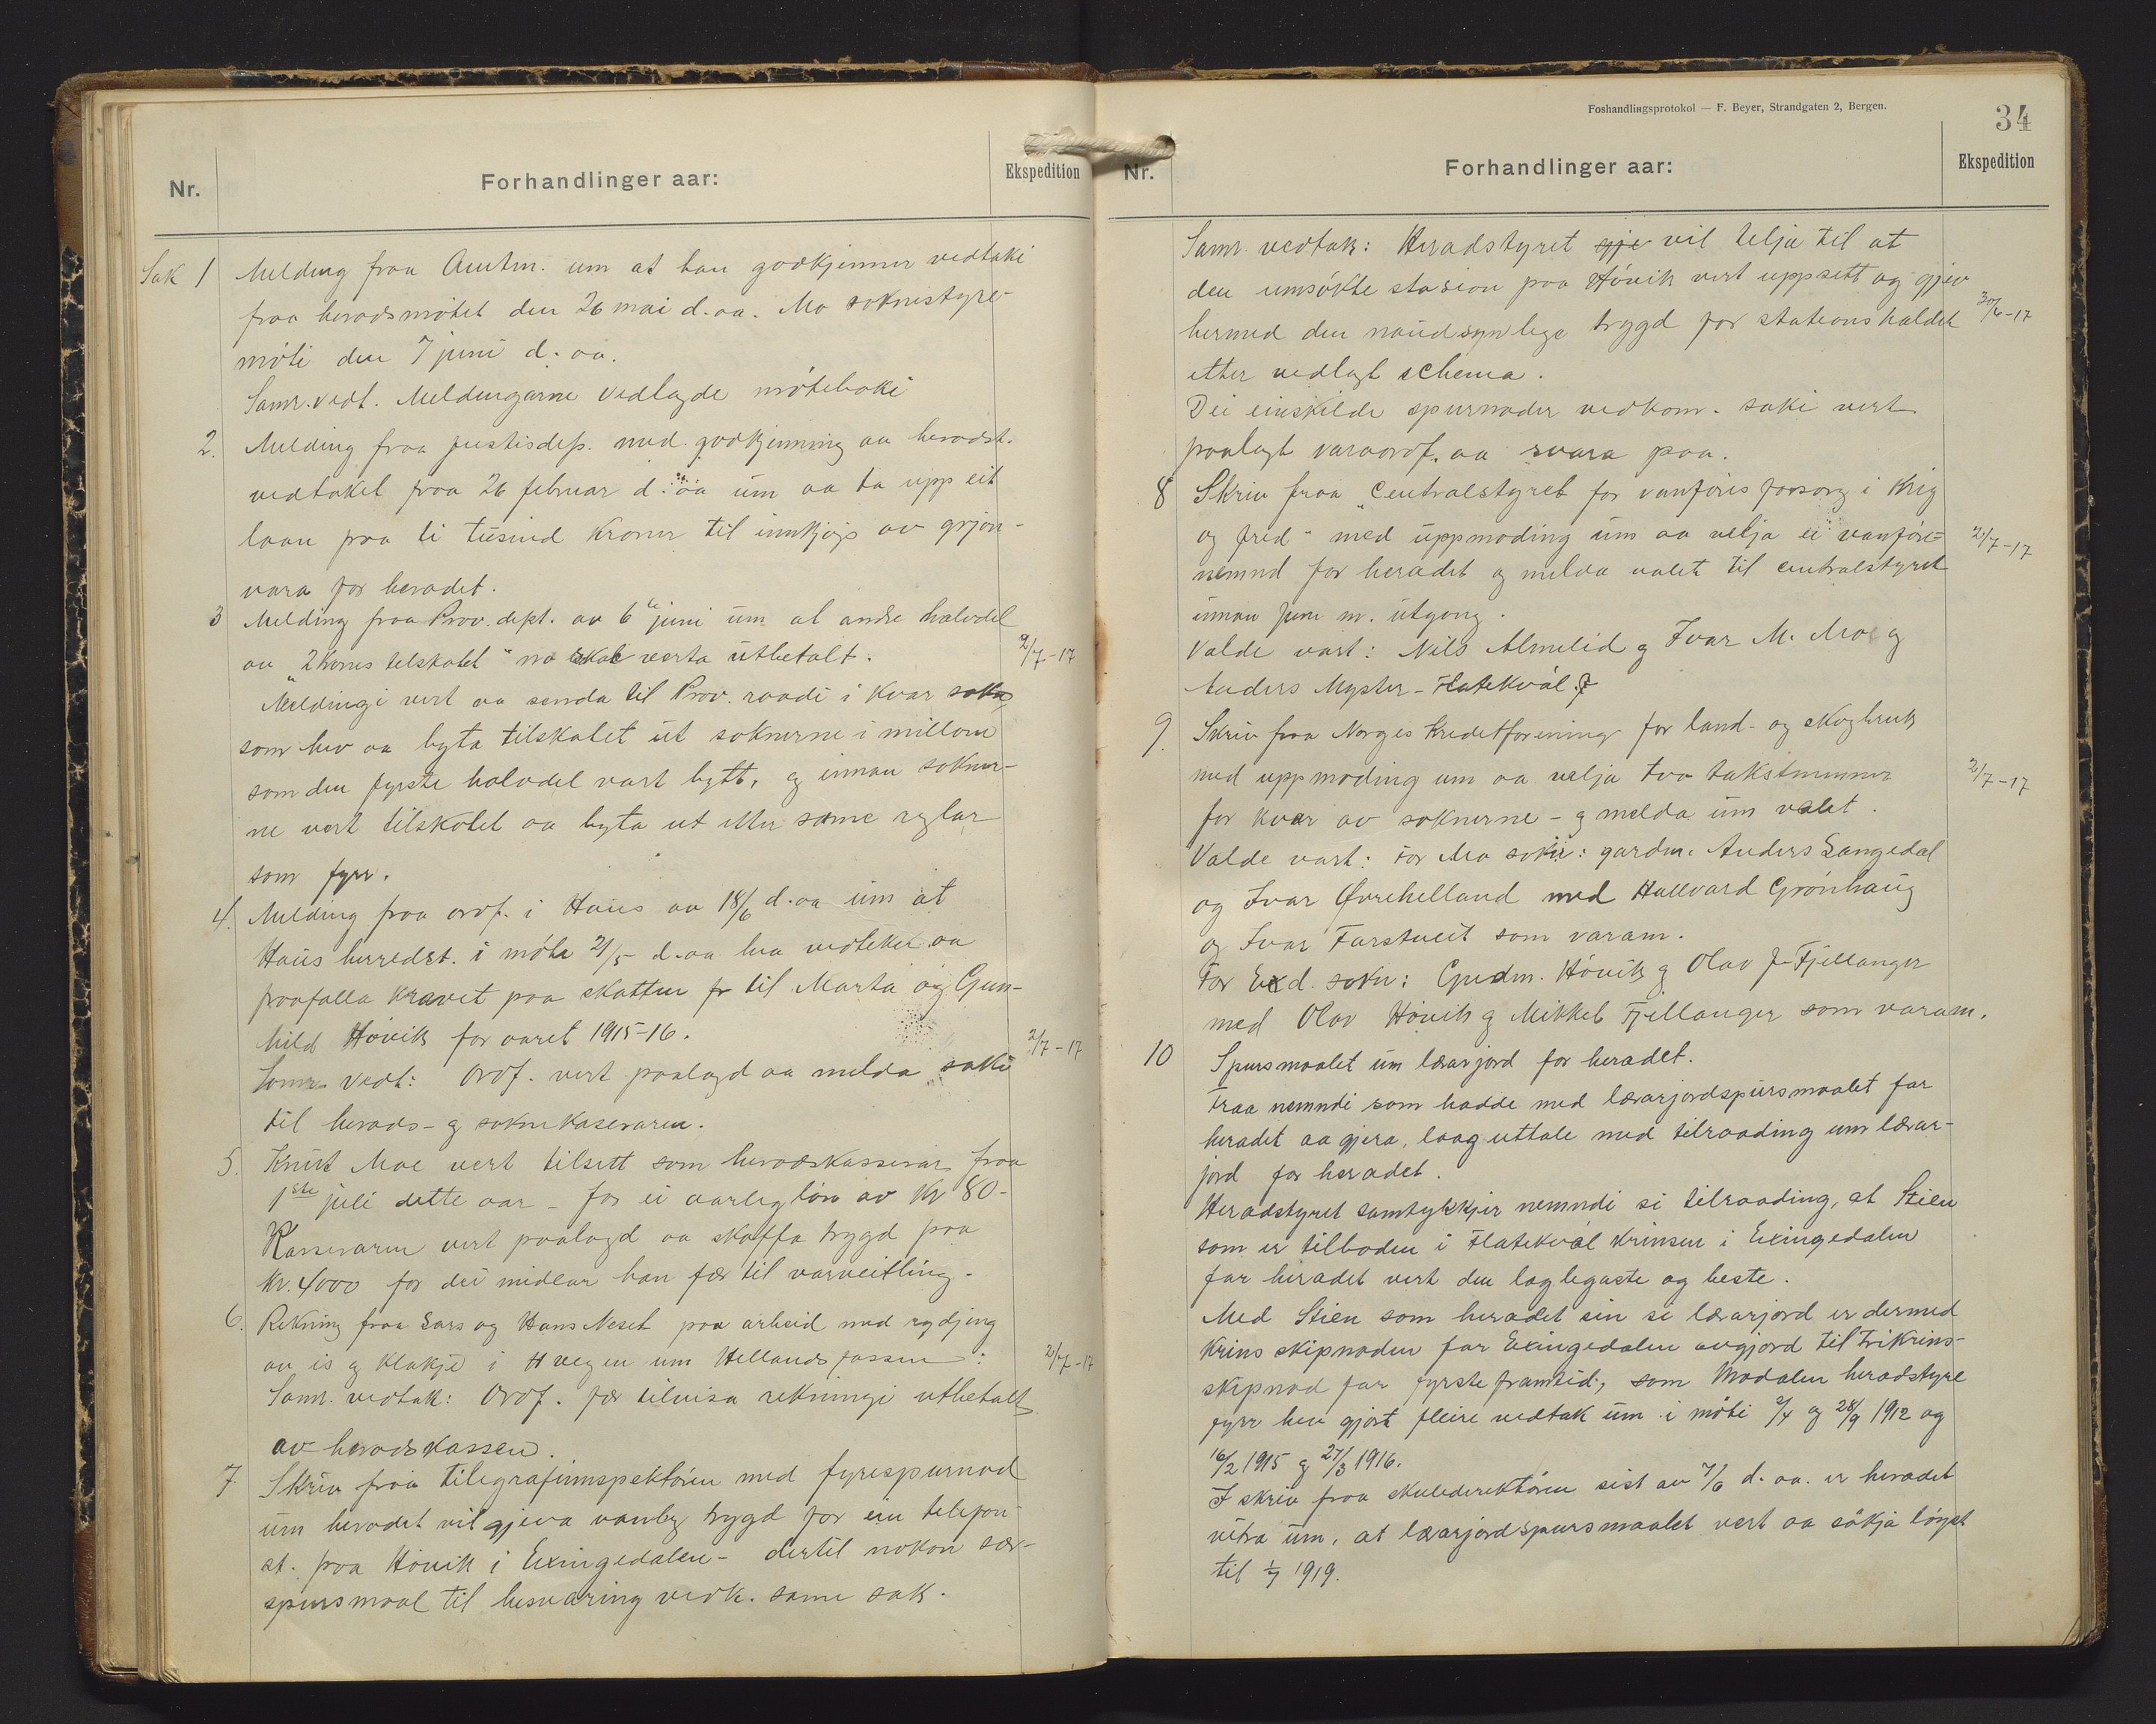 Nr.
Forhandlinger aar:
Ekspedition
Sak 1 Melding fraa Amtm. um at han godkjenner vedtaki
fraa heradsmötet den 26 mai d. aa. Mo soknestyre-
möti den 7 juni d. aa.
Samr. vedt. Meldingarne vedlagde möteboki
2. Melding fraa justisdep. med godkjenning av heradst.
vedtaket fraa 26 februar d. aa um aa ta upp eit
laan paa ti tusind kroner til innkjøp av grjon-
vara for heradet.
3 Melding fraa Prov. dept. av 6te juni um at andre halvdel
av "2 kroners tilskotet" no skal verta utbetalt.
2/7-17
Meldingi vert aa senda til Prov. raadi i kvar sokn
som hev aa byta tilskotet ut soknerne i millom
som den fyrste halvdel vart bytt, og innan sokner-
ne vert tilskotet aa byta ut etter same reglar
som fyrr.
4. Melding fraa ordf. i Haus av 18/6 d. aa um at
Haus herredst. i möte 21/5 d. aa hev vedteke aa
fraafalla kravet paa skatten fr til Marta og Gun-
hild Hövik for aaret 1915-16.
2/7-17
Samr. vedt: Ordf. vert paalagd aa melda saki
til herads- og soknekaseraren.
5. Knut Moe vert tilsett som heradskasserar fraa
1ste juli dette aar - for ei aarleg lön av kr 80-
Kasseraren vert paalagd aa skaffa trygd paa
kr. 4000 for dei midlar han fær til varveitling.
6. Rekning fraa Lars og Hans Neset paa arbeid med rydjing
av is og klakje i H vegen um Hellandsfossen:
2/7-17
Samr. vedtak: Ordf. fær tilvisa rekningi utbetalt
av heradskassen.
7 Skriv fraa telegrafinnspektören med fyrespurnad
um heradet vil gjeva vanleg trygd for ein telefon
st. paa Hövik i Exingedalen - dertil nokon sær-
spursmaal til besvaring vedk. same sak.
Foshandlingsprotokol — F. Beyer, Strandgaten 2, Bergen.
34
Nr.
Forhandlinger aar:
Ekspedition
Samr. vedtak: Heradstyret gje vil telja til at
den umsökte stasion paa Hövik vert uppsett og gjev
hermed den naudsynlege trygd for stationshaldet
30/6-17
etter vedlagt schema.
Dei einskilde spurnader vedkom. saki vert
paalagt varaordf. aa svara paa.
8 Skriv fraa "Centralstyret for vanföres forsorg i krig
og fred" med uppmoding um aa velja ei vanföre-
2/7-17
nemnd for heradet og melda valet til centralstyret
innan juni m. utgong.
Valde vart: Nils Almelid og Ivar M. Mo og
Anders Myster - Flatekvål.
9. Skriv fraa Norges Kreditforening for land- og skogbruk
med uppmoding um aa velja tvo takstmenner
2/7-17
for kvar av soknerne - og melda um valet.
Valde vart: For Mo sokn: gardm. Anders Langedal
og Ivar Øvrehelland med Hallvard Grönhaug
og Ivar Farstveit som varam.
For Exd. sokn: Gudm. Hövik og Olav J. Fjellanger
med Olav Hövik og Mikkel Fjellanger som varam.
10 Spursmaalet um lærarjord for heradet.
Fraa nemndi som hadde med lærarjordspursmaalet for
heradet aa gjera, laag uttale med tilraading um lærar-
jord for heradet.
Heradstyret samtykkjer nemndi si tilraading, at Stien
som er tilboden i Flatekvål krinsen i Exingedalen
for heradet vert den laglegaste og beste.
Med Stien som heradet sin si lærarjord er dermed
krinsskipnaden for Exingedalen avgjord til trikrins-
skipnad for fyrste framtid, som Modalen heradstyre
fyrr hev gjort fleire vedtak um i möti 2/4 og 28/9 1912 og
16/2 1915 og 27/3 1916.
I skriv fraa skuledirektören sist av 7/6 d. aa. er heradet
vitra um, at lærarjordspursmaalet vert aa sökja löyst
til 1/7 1919.